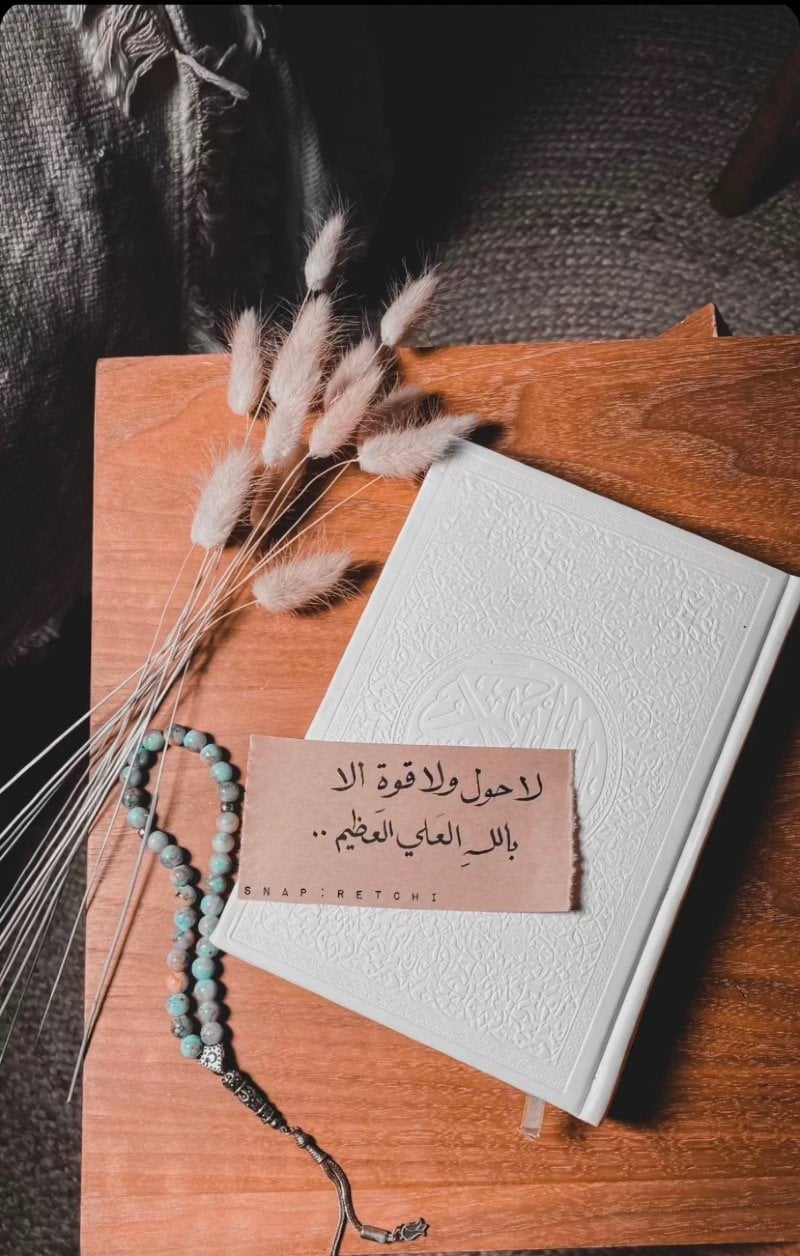 لا حول ولا قوة الا
بالله العَلي العَظيم ..
SNAP:RETCHI